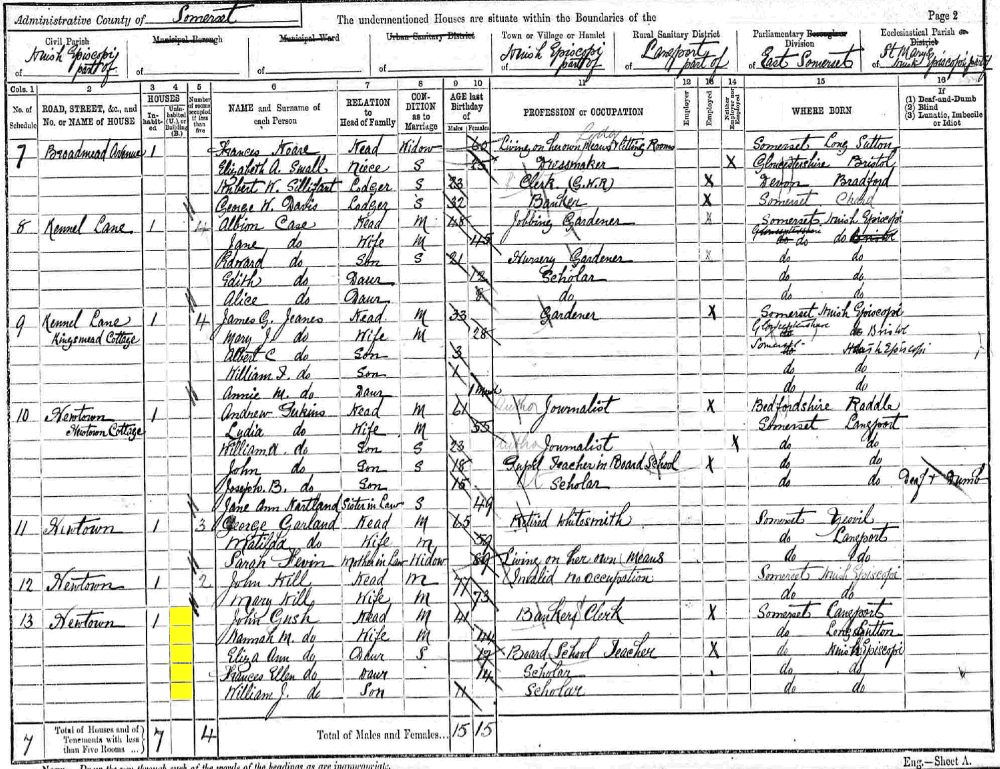 Administrative County of Somerset The undermentioned Houses are situate within the Boundaries of the Page 2
Civil Parish Municipal Borough Municipal Ward Urban Sanitary District Town or Village or Hamlet Rural Sanitary District Parliamentary Borough Division Ecclesiastical Parish or District
of Huish Episcopi part of of of of of Huish Episcopi part of of Langport part of of East Somerset of St Mary's Huish Episcopi part of
Cols. 1 2 3 4 5 6 7 8 9 10 11 12 13 14 15 16
No. of Schedule ROAD, STREET, &c., and No. or NAME of HOUSE HOUSES Inhabited Uninhabited (U.), or Building (B.) Number of rooms occupied if less than five NAME and Surname of each Person RELATION to Head of Family CONDITION as to Marriage AGE last Birthday of Males Females PROFESSION or OCCUPATION Employer Employed Neither Employer nor Employed WHERE BORN If (1) Deaf-and-Dumb (2) Blind (3) Lunatic, Imbecile or Idiot
7 Broadmead Avenue 1 Frances Hoare Head Widow 60 Living on her own Means & letting Rooms Somerset Long Sutton
Elizabeth A. Small Niece S 25 Dressmaker X Gloucestershire Bristol
Hubert W. Lodger S 23 Clerk (G.W.R) X Devon Bradford
George W. Davis Lodger S 32 Banker X Somerset Chard
8 Kennel Lane 1 4 Albion Case Head M 48 Jobbing Gardener X Somerset Huish Episcopi
Jane do Wife M 45 do do
Edward do Son S 21 Nursery Gardener X do do
Edith do Daur 12 Scholar do do
Alice do Daur 8 do do do
9 Kennel Lane 1 4 James G. Jeanes Head M 33 Gardener X Somerset Huish Episcopi
Kingsmead Cottage Mary J. do Wife M 28 Gloucestershire Bristol
Albert C do Son 3 Somerset Huish Episcopi
William J. do Son 1 do do
Annie M. do Daur 1 Month do do
10 Newtown 1 Andrew Head M 61 Journalist X Bedfordshire Raddle
Newtown Cottage Lydia do Wife M 55 Somerset Langport
William A. do Son S 23 Journalist X do do
John do Son S 18 Pupil Teacher in Board School X do do
Joseph B. do Son 15 Scholar do do Deaf & Dumb
Jane Ann Hartland Sister in Law S 49
11 Newtown 1 3 George Garland Head M 65 Retired Whitesmith Somerset Yeovil
Matilda do Wife M 59 do Langport
Sarah Mother in Law Widow 89 Living on her own means do do
12 Newtown 1 2 John Hill Head M 77 Invalid no occupation Somerset Huish Episcopi
Mary Hill Wife M 73 do do
13 Newtown 1 John Gush Head M 41 Bankers Clerk X Somerset Langport
Hannah M. do Wife M 44 do Long Sutton
Eliza Ann do Daur S Board School Teacher X do Huish Episcopi
Frances Ellen do Daur 14 Scholar do do
William J. do Son 11 Scholar do do
7 Total of Houses and of Tenements with less than Five Rooms ... 7 4 Total of Males and Females... 15 15
Eng.—Sheet A.